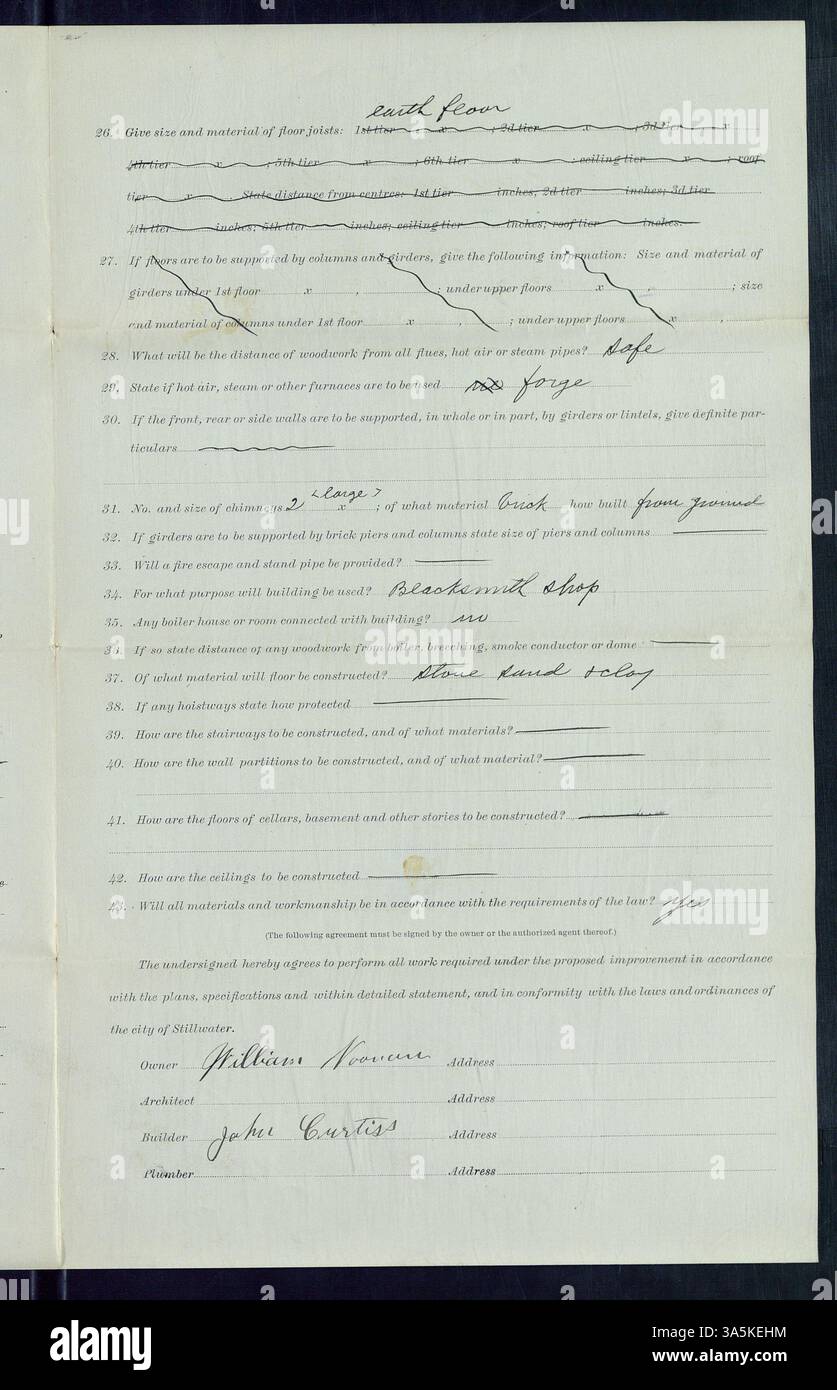 earth floor
26. Give size and material of floor joists: 1st tier x ; 2d tier x ; 3d x
4th tier x ; 5th tier x ; 6th tier x ; ceiling tier x ; roof
tier x . State distance from centres: 1st tier inches; 2d tier inches; 3d tier
4th tier inches; 5th tier inches; ceiling tier inches; roof tier inches.
27. If floors are to be supported by columns and girders, give the following information: Size and material of
girders under 1st floor x , ; under upper floors x , ; size
and material of columns under 1st floor x , ; under upper floors x ,
28. What will be the distance of woodwork from all flues, hot air or steam pipes? safe
29. State if hot air, steam or other furnaces are to be used no forge
30. If the front, rear or side walls are to be supported, in whole or in part, by girders or lintels, give definite par-
ticulars
31. No. and size of chimneys 2 <large> x ; of what material brick how built from ground
32. If girders are to be supported by brick piers and columns state size of piers and columns
33. Will a fire escape and stand pipe be provided?
34. For what purpose will building be used? Blacksmith shop
35. Any boiler house or room connected with building? no
36. If so state distance of any woodwork from boiler, breeching, smoke conductor or dome
37. Of what material will floor be constructed? stone sand & clay
38. If any hoistways state how protected
39. How are the stairways to be constructed, and of what materials?
40. How are the wall partitions to be constructed, and of what material?
41. How are the floors of cellars, basement and other stories to be constructed?
42. How are the ceilings to be constructed
43. Will all materials and workmanship be in accordance with the requirements of the law? yes
(The following agreement must be signed by the owner or the authorized agent thereof.)
The undersigned hereby agrees to perform all work required under the proposed improvement in accordance
with the plans, specifications and within detailed statement, and in conformity with the laws and ordinances of
the city of Stillwater.
Owner William Noonan Address
Architect Address
Builder John Curtiss Address
Plumber Address
alamy
Image ID: 3A5KEHM
www.alamy.com